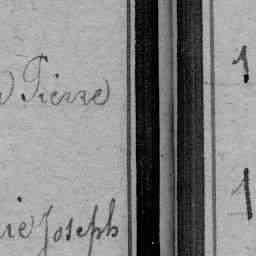 Pierre 1
Joseph 1